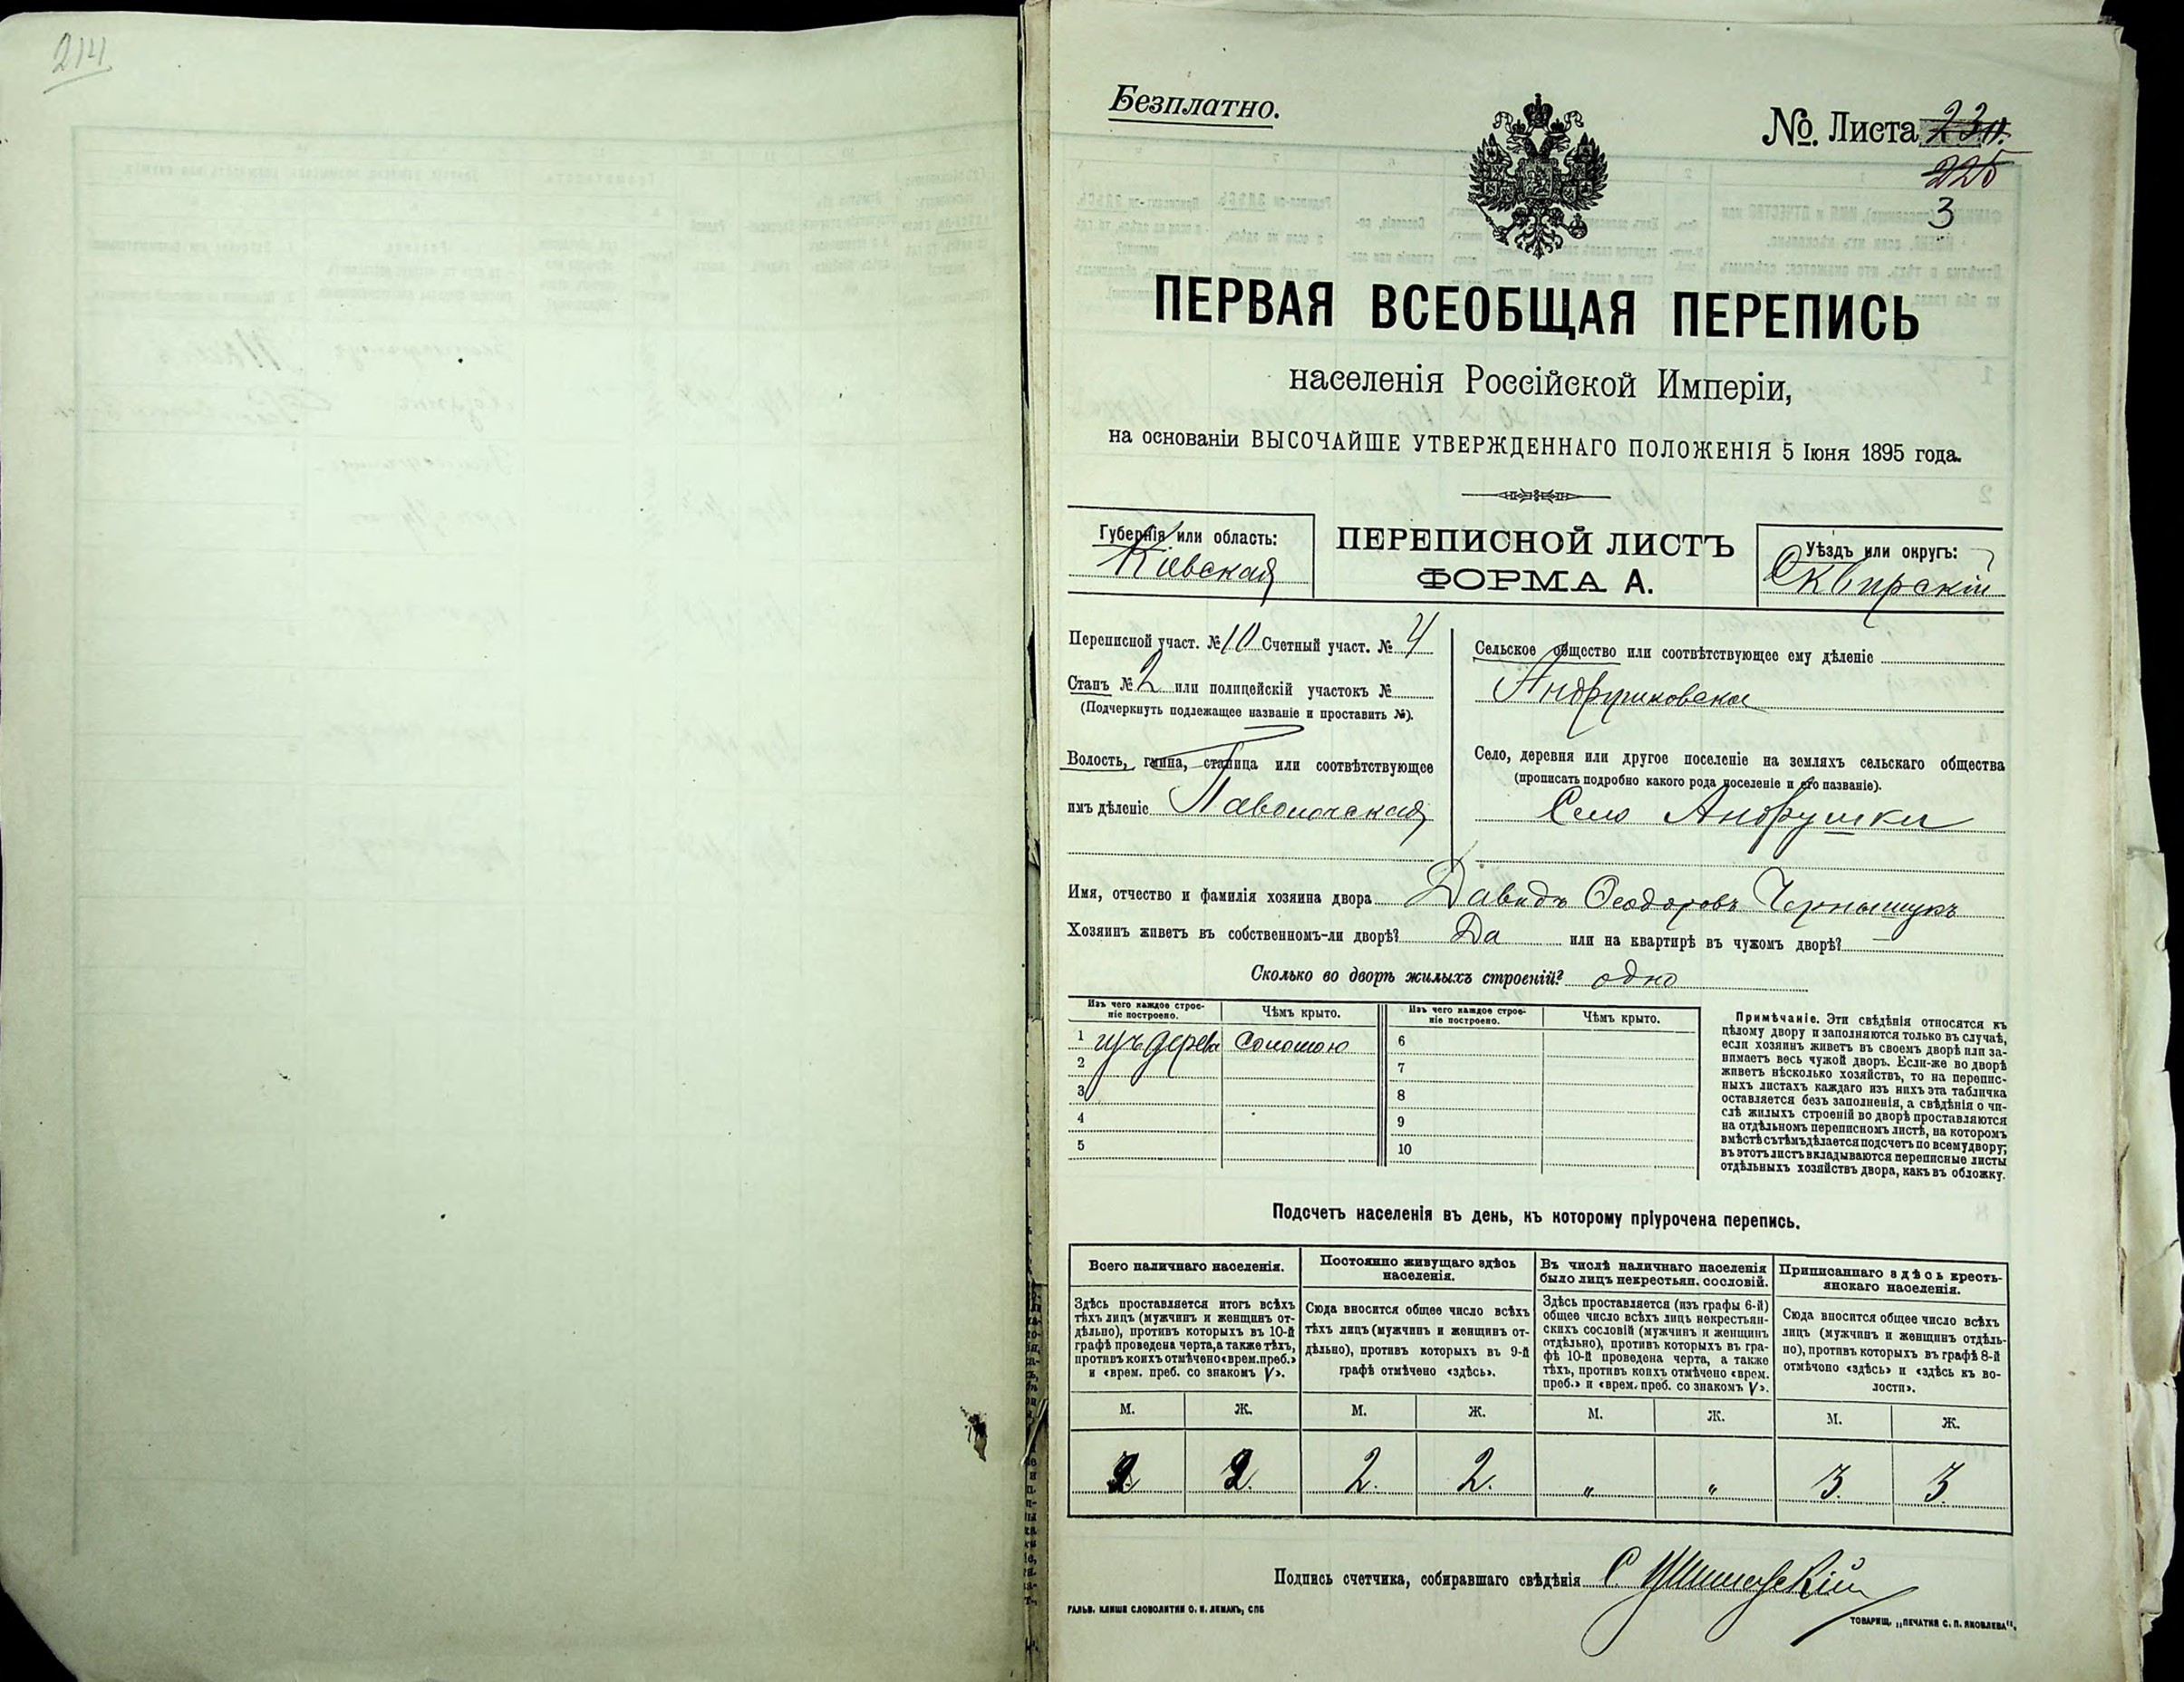 214
Безплатно.
№. Листа 230.
225
3
ПЕРВАЯ ВСЕОБЩАЯ ПЕРЕПИСЬ
населенія Россійской Имперіи,
на основаніи ВЫСОЧАЙШЕ УТВЕРЖДЕННАГО ПОЛОЖЕНІЯ 5 Іюня 1895 года.
Губернія или область:
Кіевская
ПЕРЕПИСНОЙ ЛИСТЪ
ФОРМА А.
Уѣздъ или округъ:
Сквирскій
Переписной участ. № 10 Счетный участ. № 4
Станъ № 2 или полицейскій участокъ №
(Подчеркнуть подлежащее названіе и проставить №).
Волость, гмина, станица или соотвѣтствующее
имъ дѣленіе Паволочская
Сельское общество или соотвѣтствующее ему дѣленіе
Андрушковское
Село, деревня или другое поселеніе на земляхъ сельскаго общества
(прописать подробно какого рода поселеніе и его названіе).
Село Андрушки
Имя, отчество и фамилія хозяина двора Давидъ Ѳеодоровъ Чернышукъ
Хозяинъ живетъ въ собственномъ-ли дворѣ? Да или на квартирѣ въ чужомъ дворѣ? —
Сколько во дворѣ жилыхъ строеній? одно
Изъ чего каждое строе-
ніе построено.
Чѣмъ крыто.
Изъ чего каждое строе-
ніе построено.
Чѣмъ крыто.
1 изъ дерева Соломою
2
3
4
5
6
7
8
9
10
Примѣчаніе. Эти свѣдѣнія относятся къ
цѣлому двору и заполняются только въ случаѣ,
если хозяинъ живетъ въ своемъ дворѣ или за-
нимаетъ весь чужой дворъ. Если-же во дворѣ
живетъ нѣсколько хозяйствъ, то на перепис-
ныхъ листахъ каждаго изъ нихъ эта табличка
оставляется безъ заполненія, а свѣдѣнія о чи-
слѣ жилыхъ строеній во дворѣ проставляются
на отдѣльномъ переписномъ листѣ, на которомъ
вмѣстѣ съ тѣмъ дѣлается подсчетъ по всему двору;
въ этотъ листъ вкладываются переписные листы
отдѣльныхъ хозяйствъ двора, какъ въ обложку.
Подсчетъ населенія въ день, къ которому пріурочена перепись.
Всего наличнаго населенія.
Здѣсь проставляется итогъ всѣхъ
тѣхъ лицъ (мужчинъ и женщинъ от-
дѣльно), противъ которыхъ въ 10-й
графѣ проведена черта, а также тѣхъ,
противъ коихъ отмѣчено «врем. преб.»
и «врем. преб. со знакомъ V».
Постоянно живущаго здѣсь
населенія.
Сюда вносится общее число всѣхъ
тѣхъ лицъ (мужчинъ и женщинъ от-
дѣльно), противъ которыхъ въ 9-й
графѣ отмѣчено «здѣсь».
Въ числѣ наличнаго населенія
было лицъ некрестьян. сословій.
Здѣсь проставляется (изъ графы 6-й)
общее число всѣхъ лицъ некрестьян-
скихъ сословій (мужчинъ и женщинъ
отдѣльно), противъ которыхъ въ гра-
фѣ 10-й проведена черта, а также
тѣхъ, противъ коихъ отмѣчено «врем.
преб.» и «врем. преб. со знакомъ V».
Приписаннаго здѣсь кресть-
янскаго населенія.
Сюда вносится общее число всѣхъ
лицъ (мужчинъ и женщинъ отдѣль-
но), противъ которыхъ въ графѣ 8-й
отмѣчено «здѣсь» и «здѣсь къ во-
лости».
М. Ж. М. Ж. М. Ж. М. Ж.
2 2. 2. 2. " " 3. 3.
Подпись счетчика, собиравшаго свѣдѣнія С.
ГАЛЬВ. КЛИШЕ СЛОВОЛИТНИ О. И. ЛЕМАНЪ, СПБ
ТОВАРИЩ. „ПЕЧАТНЯ С. П. ЯКОВЛЕВА“.